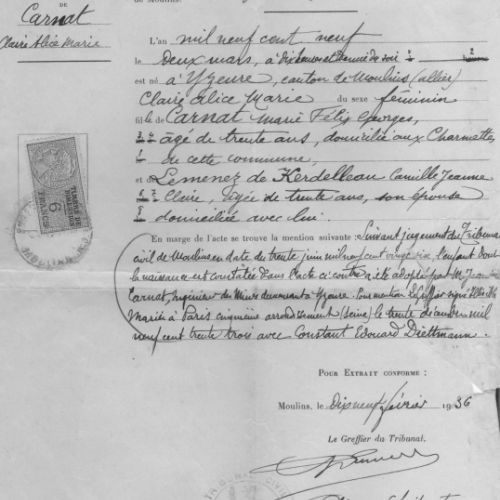 DE
Carnat
Claire Alice Marie
de Moulins.
L'an mil neuf cent neuf
le deux mars, à dix heures et demie du soir
est né à Yzeure, canton de Moulins (Allier)
Claire Alice Marie du sexe féminin
fille de Carnat Marie Félix Georges,
âgé de trente ans, domicilié aux Charmettes
de cette commune,
et de Lemenez de Kerdelleau Camille Jeanne
Claire, âgée de trente ans, son épouse
domiciliée avec lui.
En marge de l'acte se trouve la mention suivante : Suivant jugement du Tribunal
civil de Moulins en date du trente juin mil neuf cent vingt six, l'enfant dont
la naissance est constatée dans l'acte ci contre a été adopté par M. Jean
Carnat, Ingénieur des Mines demeurant à Yzeure. Pour mention Le Greffier signé
Mariée à Paris cinquième arrondissement (Seine) le trente décembre mil
neuf cent trente trois avec Constant Edouard Diettmann.
POUR EXTRAIT CONFORME :
Moulins, le dix neuf février 1936
Le Greffier du Tribunal.
6